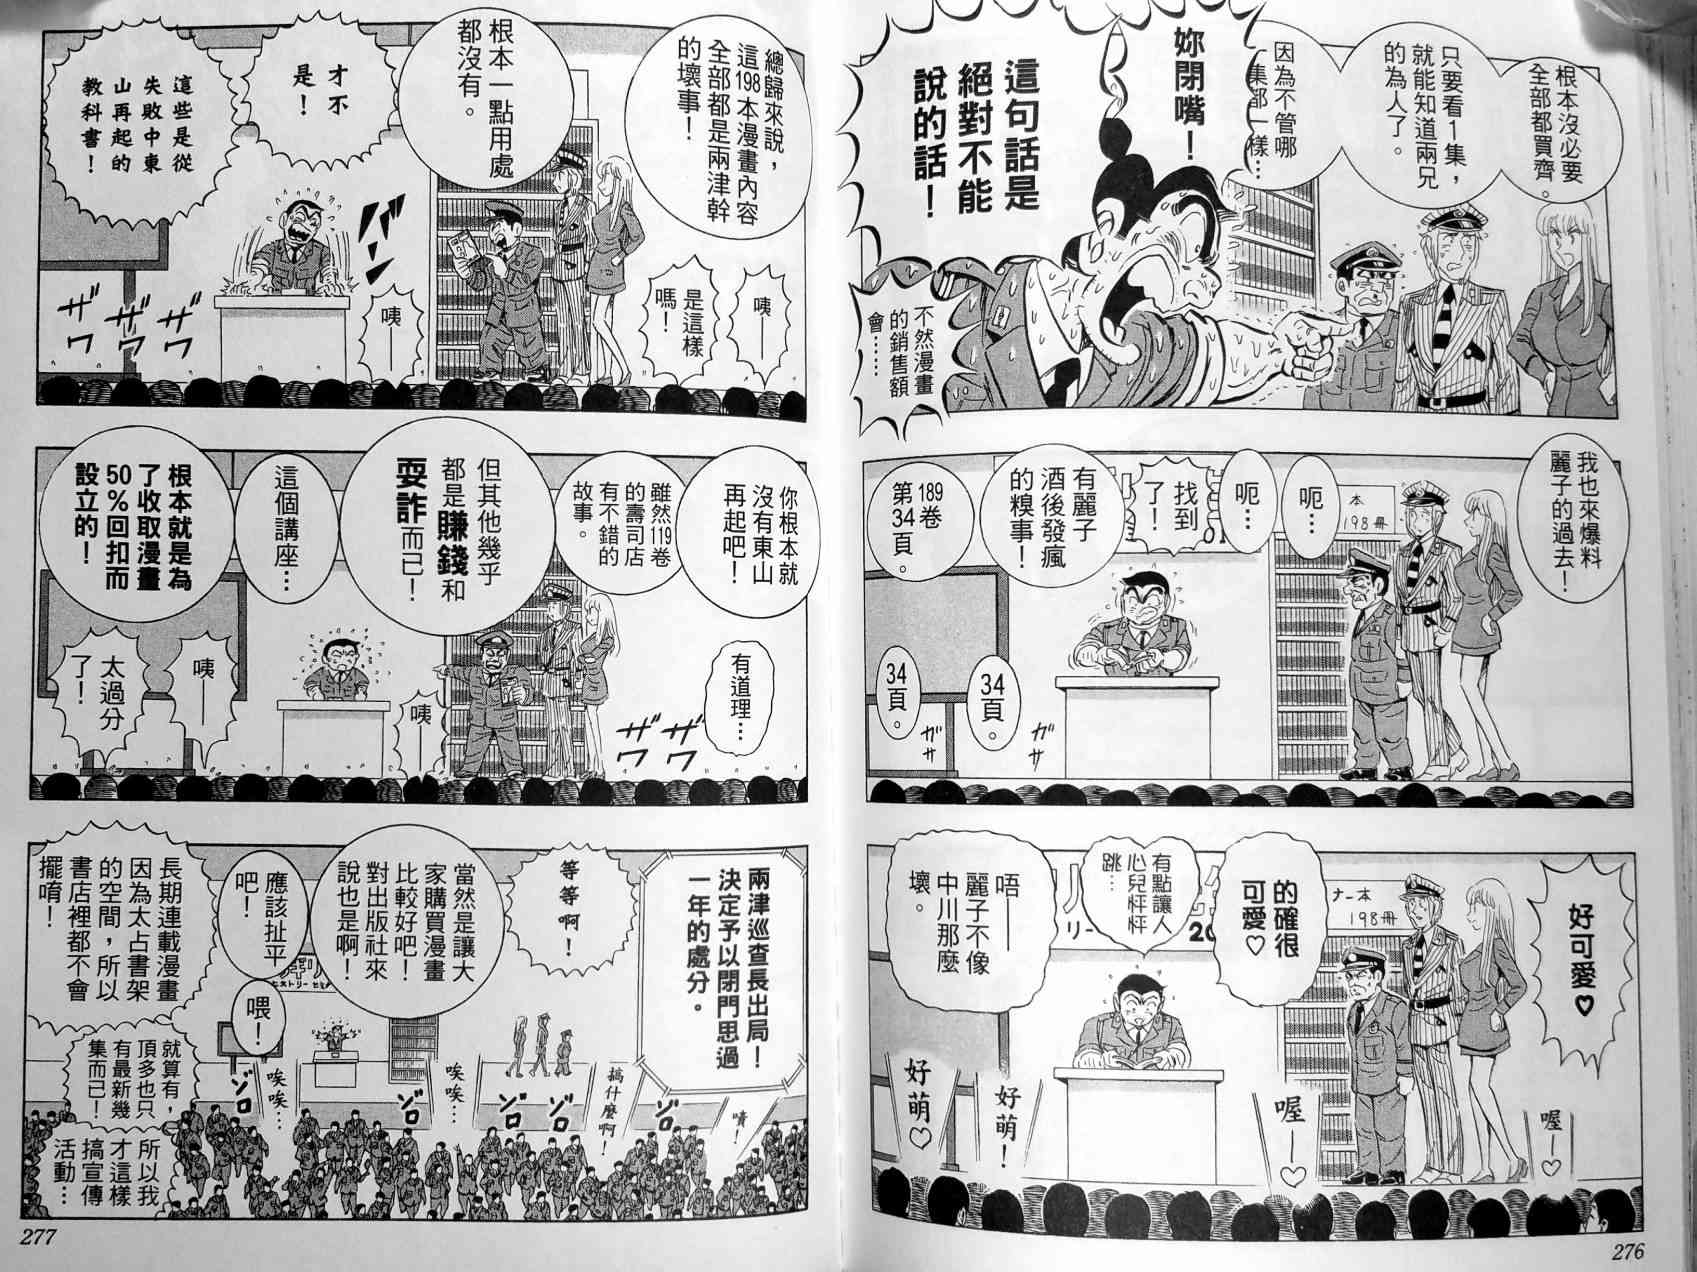 根本沒必要
全部都買齊。
只要看1集，
就能知道兩兄
的為人了。
因為不管哪
一集都一樣…
妳閉嘴！
這句話是
絕對不能
說的話！
不然漫畫
的銷售額
會……
我也來爆料
麗子的過去！
本
198冊
呃…
呃…
找到
了！
有麗子
酒後發瘋
的糗事！
第189卷
34頁。
34
頁。
34
頁。
ガサ
ガサ
好可愛♡
ナー本
198冊
的確很
可愛♡
有點讓人
心兒怦怦
跳…
唔——
麗子不像
中川那麼
壞。
リー
20
喔—♡
喔—♡
好萌！
好萌♡
276
總歸來說，
這198本漫畫內容
全部都是兩津幹
的壞事！
根本一點用處
都沒有。
才不
是！
這些是從
失敗中東
山再起的
教科書！
バーン
咦——
是這樣
嗎！
咦——
ザワ
ザワ
ザワ
你根本就
沒有東山
再起吧！
雖然119卷
的壽司店
有不錯的
故事。
但其他幾乎
都是賺錢和
耍詐而已！
這個講座…
根本就是為
了收取漫畫
50%回扣而
設立的！
有道理…
咦
咦——
太過分
了！
ザワ
ザワ
兩津巡查長出局！
決定予以閉門思過
一年的處分。
等等啊！
當然是讓大
家購買漫畫
比較好吧！
對出版社來
說也是啊！
應該扯平
吧！
喂！
長期連載漫畫
因為太占書架
的空間，所以
書店裡都不會
擺唷！
就算有，
頂多也只
有最新幾
集而已！
所以我
才這樣
搞宣傳
活動…
ヒストリー
嘖！
搞什麼啊！
唉唉…
唉唉…
ゾロ
ゾロ
ゾロ
ゾロ
277